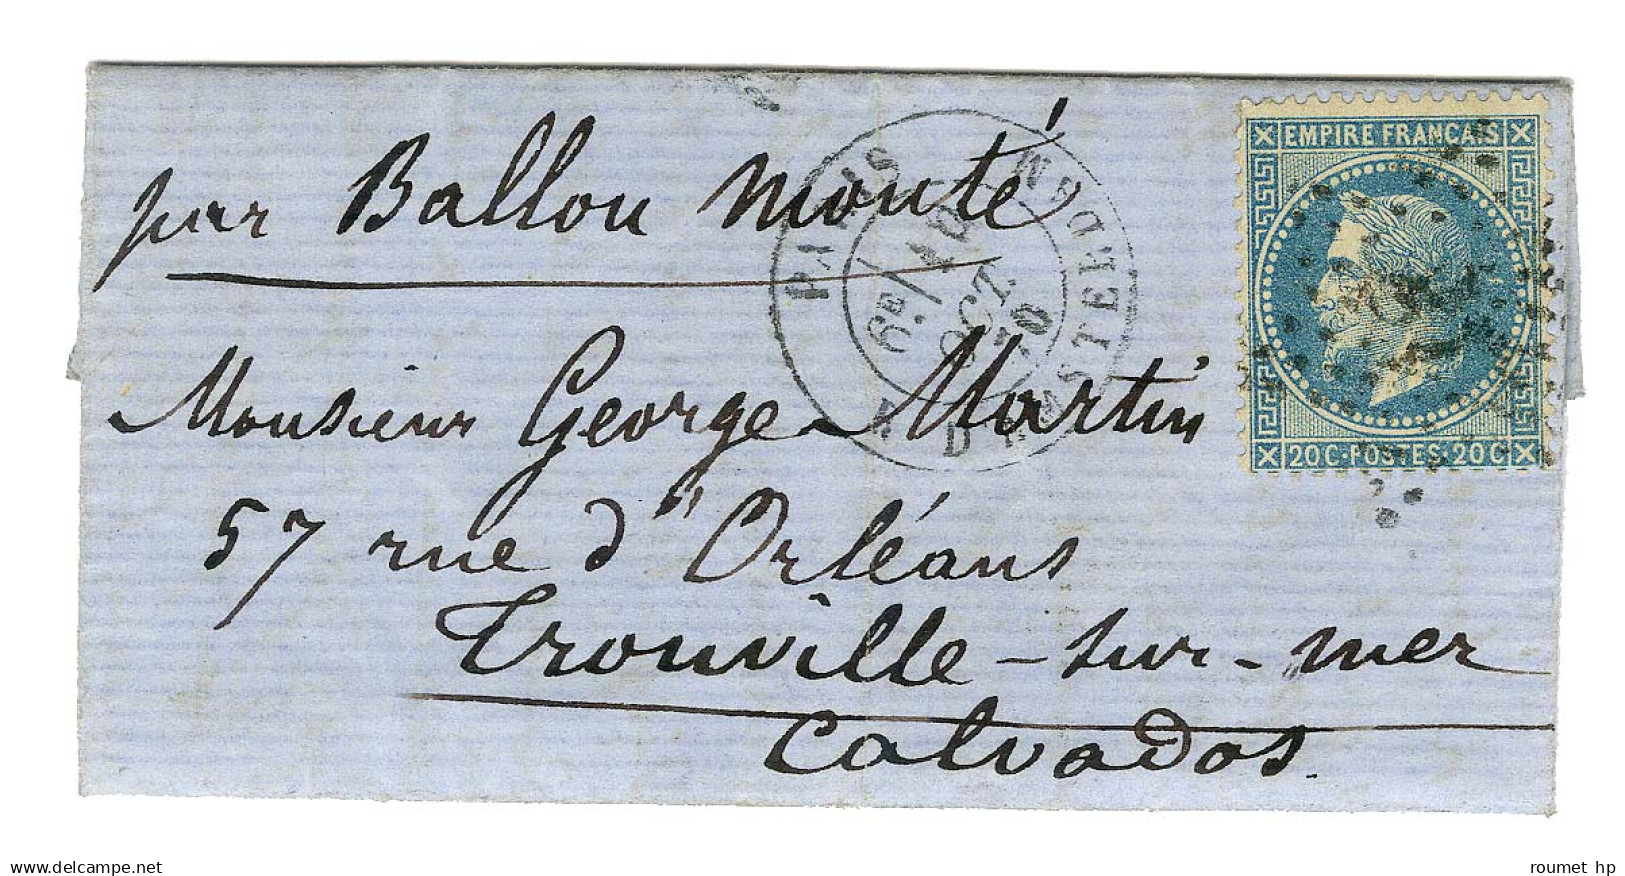 par Ballon monté
PARIS
R. D'AMSTERDAM
6E/
OCT.
70
EMPIRE FRANCAIS
20C·POSTES·20C
Monsieur George Martin
57 rue d'Orléans
Trouville-sur-mer
Calvados.
delcampe.net
roumet hp